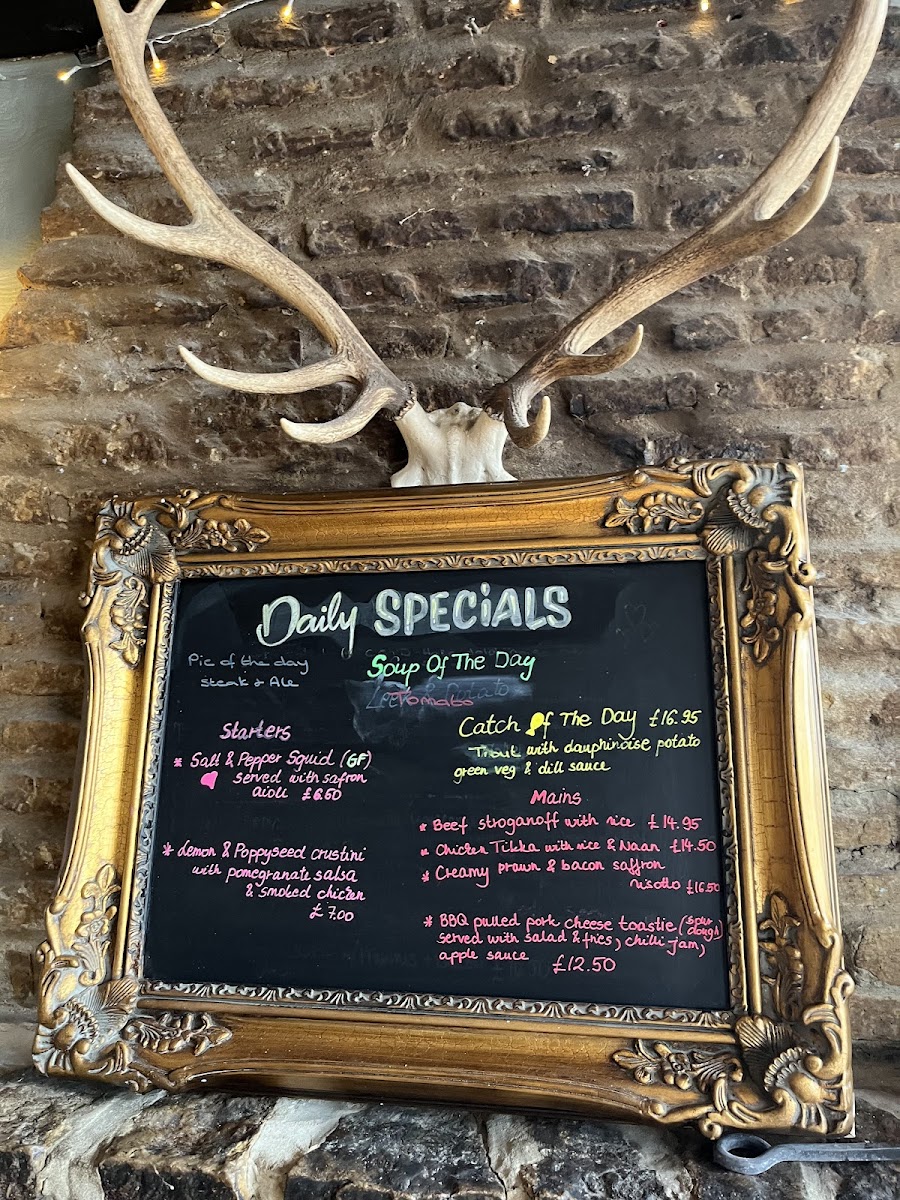 Daily SPECiALS
Pie of the day
Steak & Ale
Soup Of The Day
Tomato
Starters
* Salt & Pepper Squid (GF)
served with safron
aioli £6.50
* Lemon & Poppyseed crustini
with pomegranate salsa
& smoked chicken
£7.00
Catch Of The Day £16.95
Trout with dauphinoise potato
green veg & dill sauce
Mains
* Beef stroganoff with rice £14.95
* Chicken Tikka with rice & Naan £14.50
* Creamy prawn & bacon saffron
risotto £16.50
* BBQ pulled pork cheese toastie (sour dough)
served with salad & fries, chilli jam,
apple sauce £12.50